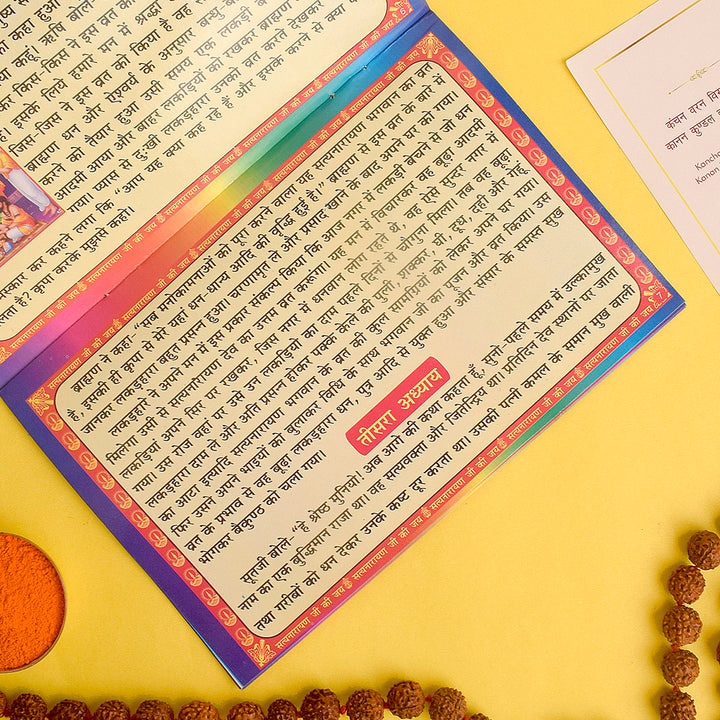 कर किस-किस ने इस व्रत को किया है वह
इसके लिये हमारे मन में श्रद्धा
जिस-जिस ने इस व्रत को किया है
ब्राह्मण धन और ऐश्वर्य के अनुसार बन्धु-बान्धवों
करने को तैयार हुआ उसी समय एक लकड़ी
आदमी आया और बाहर लकड़ियों को रखकर ब्राह्मण
गया। प्यास से दुःखी लकड़हारा उनको व्रत करते देखकर
नमस्कार कर कहने लगा कि "आप यह क्या कर रहे हैं और इसके करने से क्या
है? कृपा करके मुझसे कहो।
6
ब्राह्मण ने कहा-"सब मनोकामनाओं को पूरा करने वाला यह सत्यनारायण भगवान का व्रत
है, इसकी ही कृपा से मेरे यहां धन-धान्य आदि की वृद्धि हुई है।" ब्राह्मण से इस व्रत के बारे में
जानकर लकड़हारा बहुत प्रसन्न हुआ। चरणामृत ले और प्रसाद खाने के बाद अपने घर को गया।
लकड़हारे ने अपने मन में इस प्रकार संकल्प किया कि आज नगर में लकड़ी बेचने से जो धन
मिलेगा उसी से सत्यनारायण देव का उत्तम व्रत करूंगा। यह मन में विचारकर वह बूढ़ा आदमी
लकड़ियां अपने सिर पर रखकर, जिस नगर में धनवान लोग रहते थे, वह ऐसे सुन्दर नगर में
गया। उस रोज वहां पर उसे उन लकड़ियों का दाम पहले दिनों से चौगुना मिला। तब वह बूढ़ा
लकड़हारा दाम ले और अति प्रसन्न होकर पक्के केले की फली, शक्कर, घी, दूध, दही और गेहूँ
का आटा इत्यादि सत्यनारायण भगवान के व्रत की कुल सामग्रियों को लेकर अपने घर गया।
फिर उसने अपने भाइयों को बुलाकर विधि के साथ भगवान जी का पूजन और व्रत किया। उस
व्रत के प्रभाव से वह बूढ़ा लकड़हारा धन, पुत्र आदि से युक्त हुआ और संसार के समस्त सुख
भोगकर बैकुण्ठ को चला गया।
तीसरा अध्याय
सूतजी बोले-"हे श्रेष्ठ मुनियो! अब आगे की कथा कहता हूँ, सुनो-पहले समय में उल्कामुख
नाम का एक बुद्धिमान राजा था। वह सत्यवक्ता और जितेन्द्रिय था। प्रतिदिन देव स्थानों पर जाता
तथा गरीबों को धन देकर उनके कष्ट दूर करता था। उसकी पत्नी कमल के समान मुख वाली
7
सत्यनारायण जी की जय ॐ सत्यनारायण जी की जय ॐ सत्यनारायण जी की जय
कंचन वरन
कानन कुण्डल
Kanan